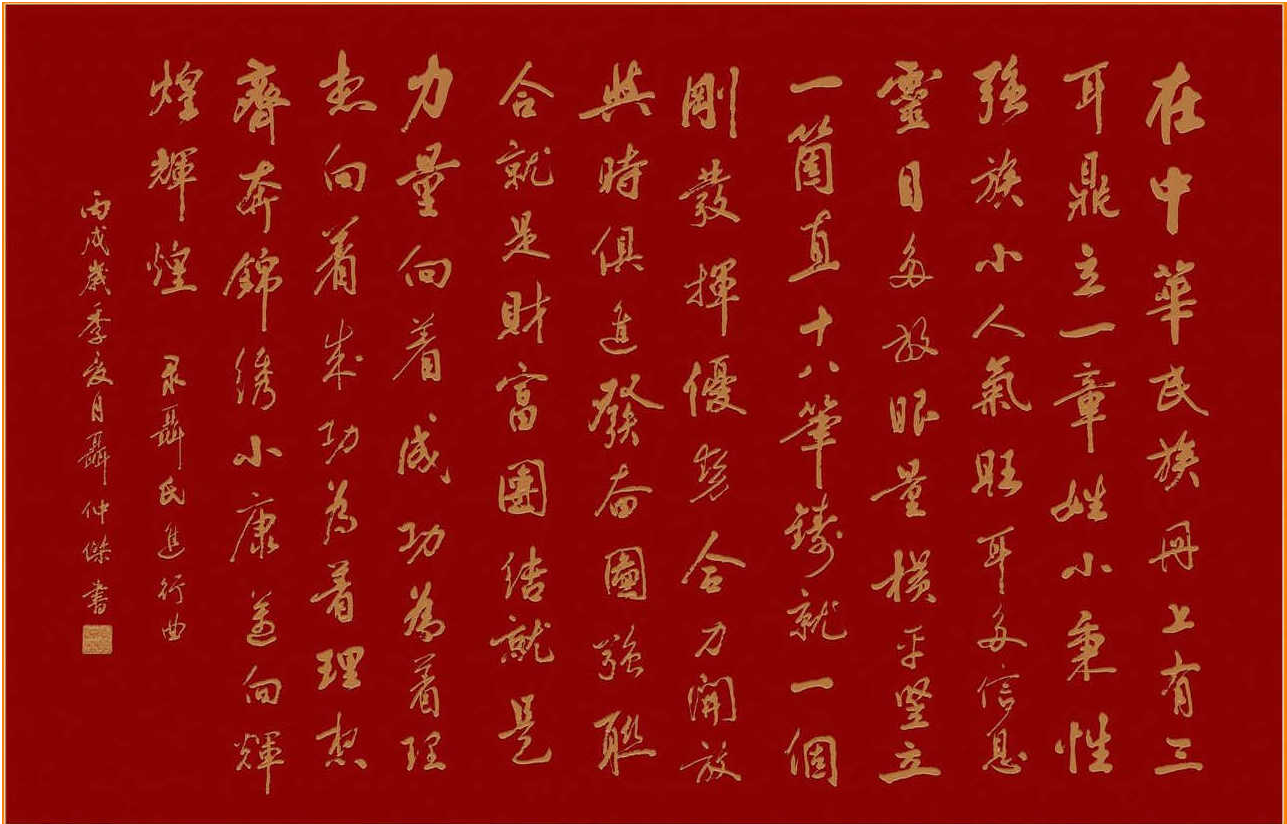 在中華民族冊上有三
耳鼎立一章姓小秉性
強族小人氣旺耳多信息
靈目多放眼量橫平竪立
一箇直十八筆鑄就一個
剛發揮優勢合力開放
與時俱進發奮圖強聯
合就是財富團結就是
力量向着成功為着理
想向着成功為着理想
齊奔錦綉小康邁向輝
煌輝煌 录聶氏進行曲
丙戌歲季夏月聶仲傑書